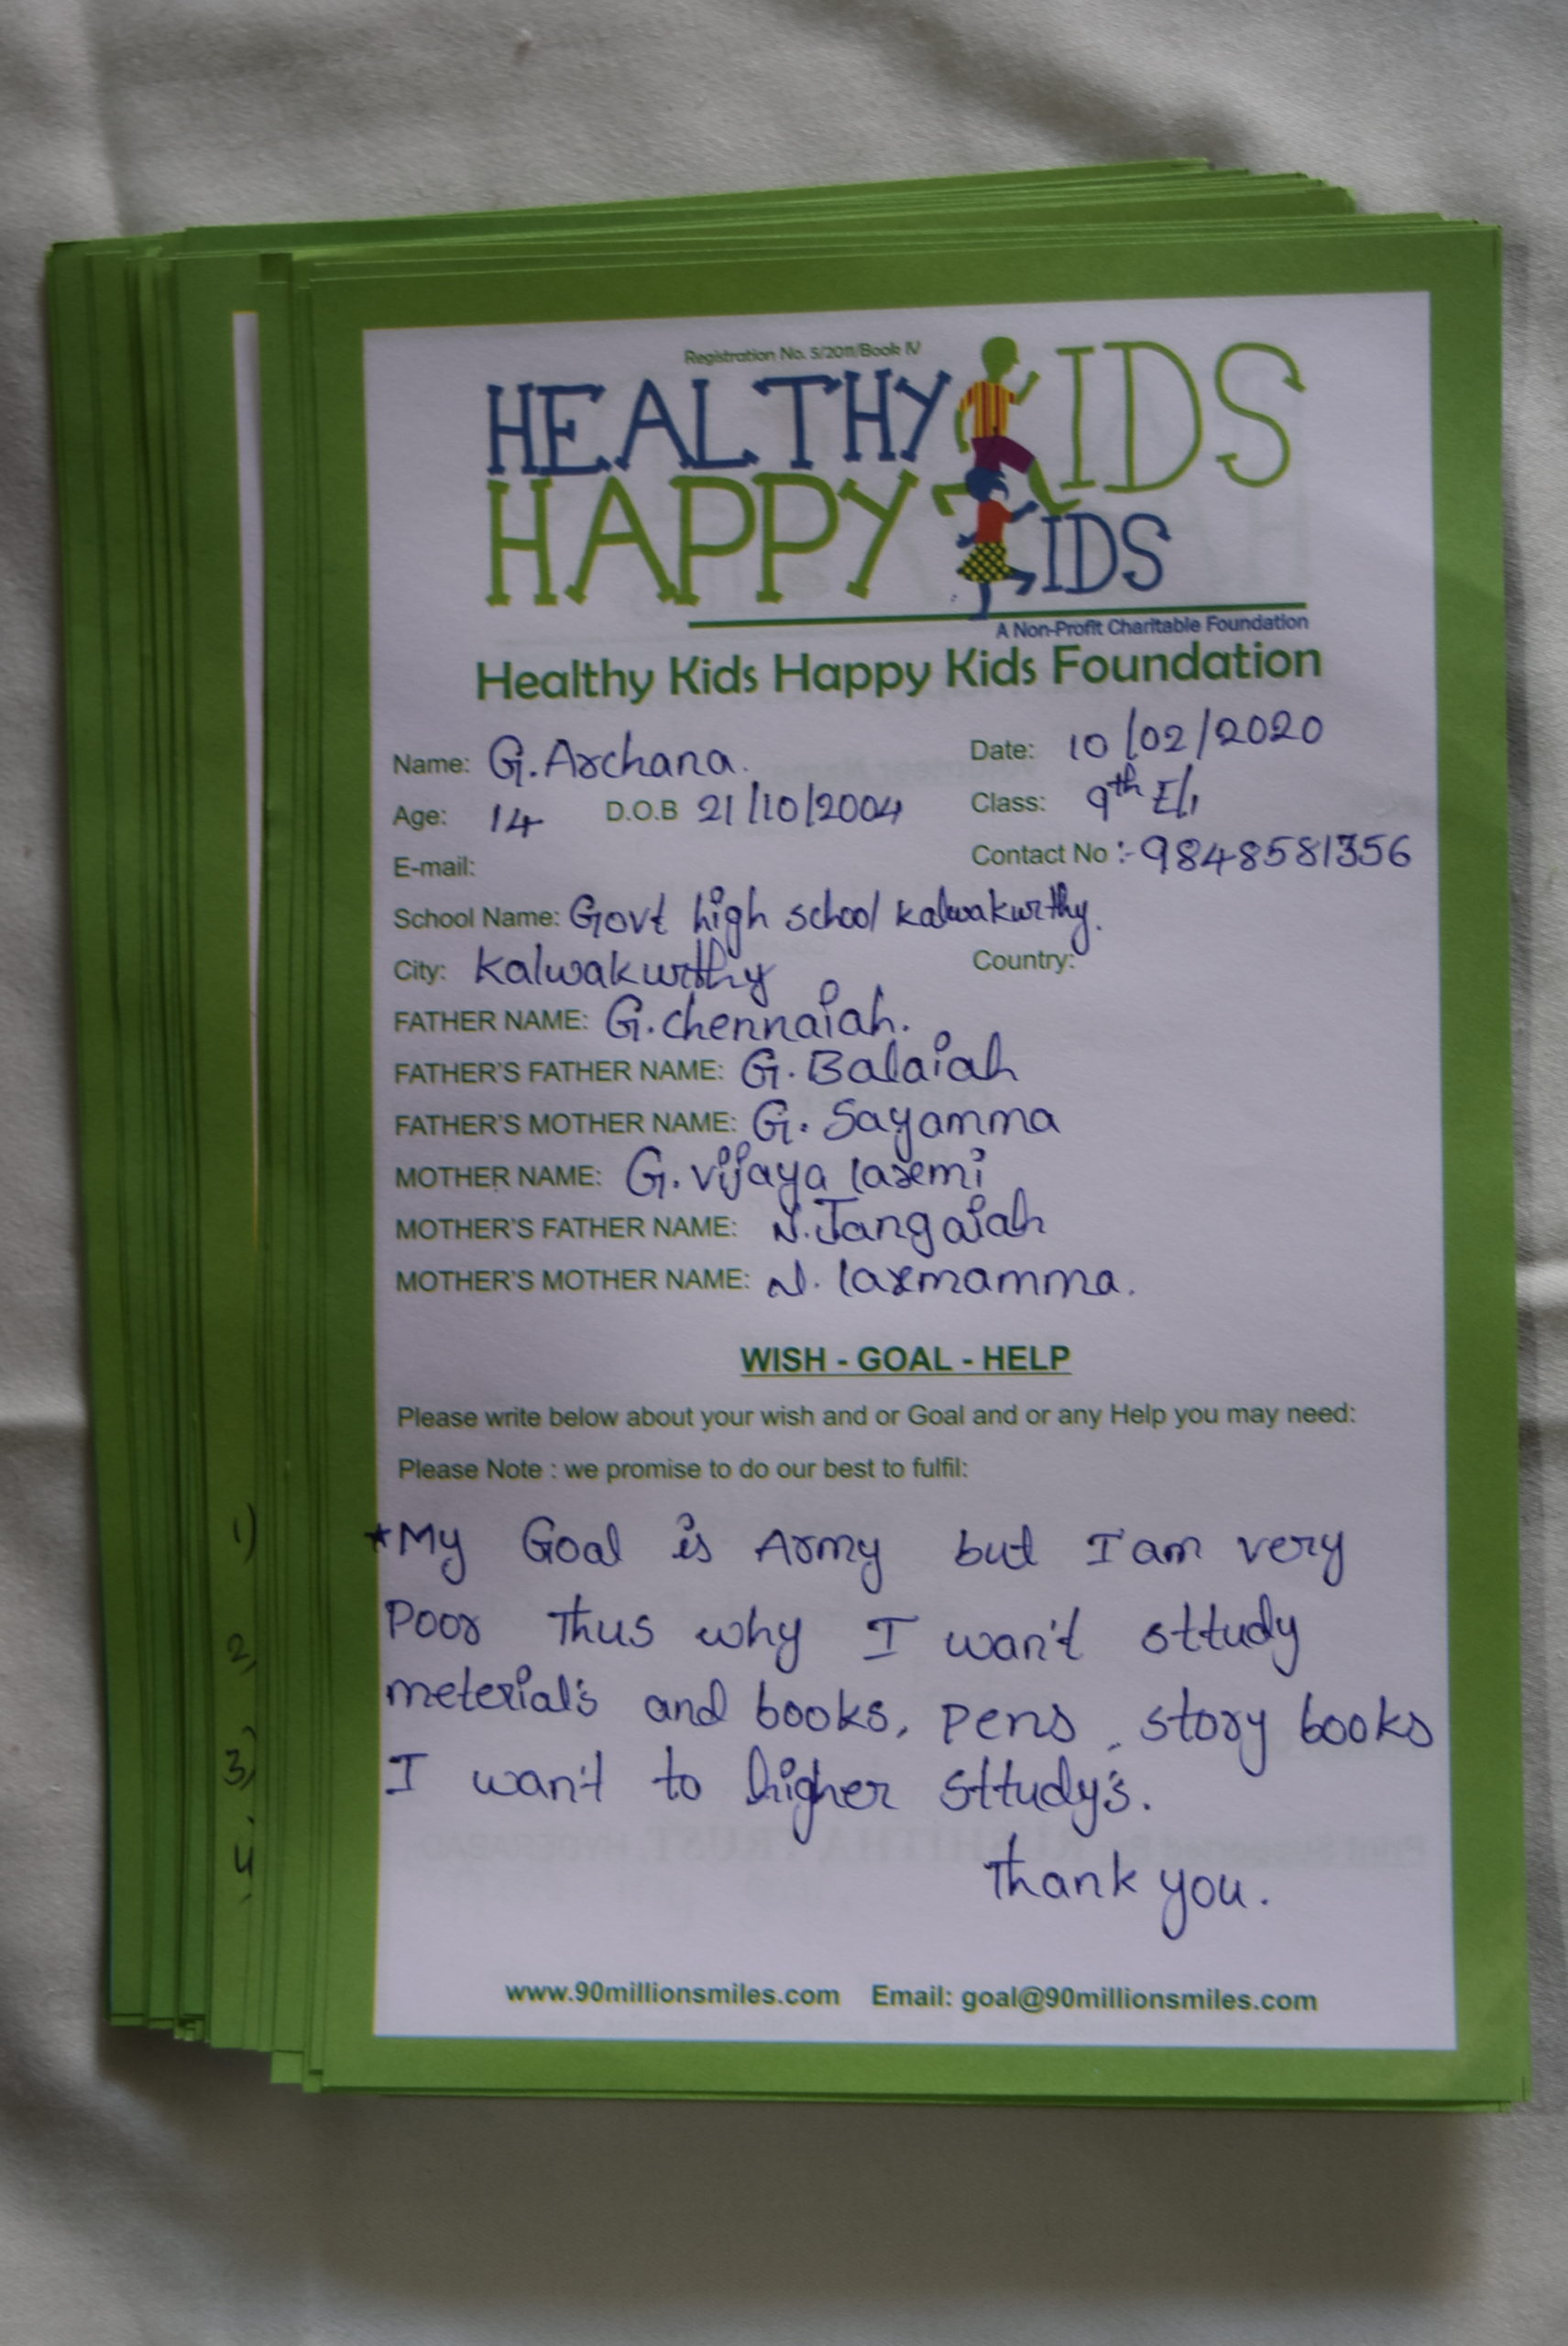 Registration No. 5/2011/Book IV
HEALTHY KIDS
HAPPY KIDS
A Non-Profit Charitable Foundation
Healthy Kids Happy Kids Foundation
Name: G. Archana. Date: 10/02/2020
Age: 14 D.O.B 21/10/2004 Class: 9th E/1
E-mail: Contact No :- 9848581356
School Name: Govt high school kalwakurthy.
City: kalwakurthy Country:
FATHER NAME: G. chennaiah.
FATHER'S FATHER NAME: G. Balaiah
FATHER'S MOTHER NAME: G. Sayamma
MOTHER NAME: G. vijaya laxmi
MOTHER'S FATHER NAME: N. Jangaiah
MOTHER'S MOTHER NAME: N. laxmamma.
WISH - GOAL - HELP
Please write below about your wish and or Goal and or any Help you may need:
Please Note : we promise to do our best to fulfil:
*My Goal is Army but I am very
Poor Thus why I wan't sttudy
meterial's and books, pens, story books
I wan't to higher sttudy's.
Thank you.
www.90millionsmiles.com Email: goal@90millionsmiles.com
1)
2)
3)
4)